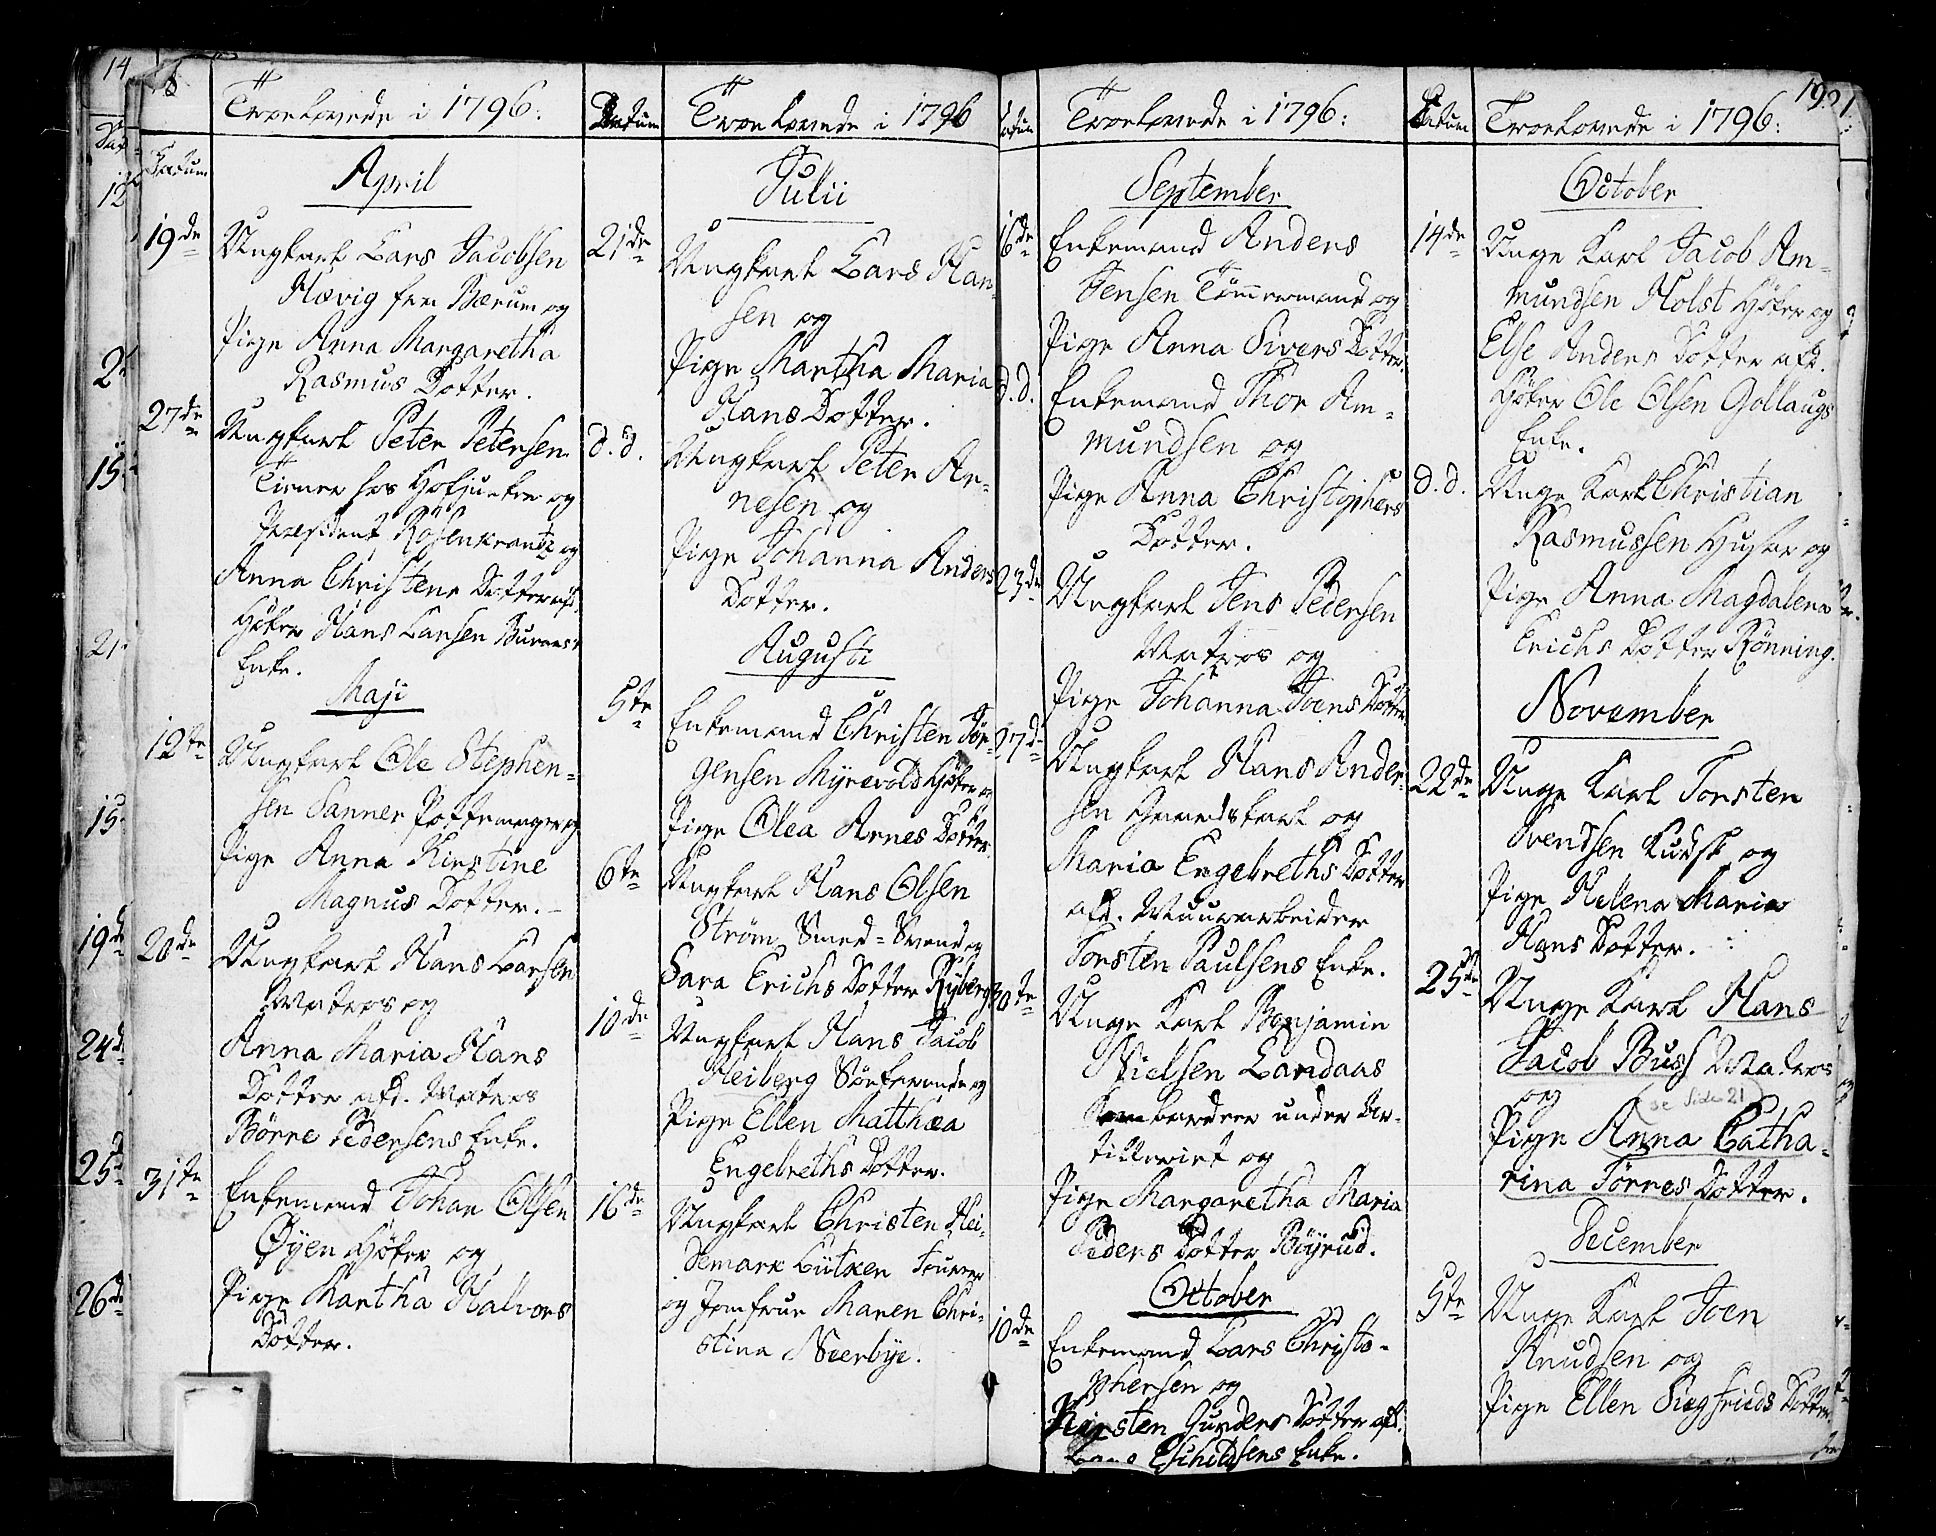 Troelovede i 1796:
Datum
April
19de
Ungkarl Lars Jacobsen
Hævig fra Bærum og
Pige Anna Margaretha
Rasmus Dotter.
27de
Ungkarl Peter Petersen
Tiener hos Hofjunker og
Præsident Rosenkrantz og
Anna Christens Dotter afd.
Høker Hans Larsen
Enke.
Maji
12te
Ungkarl Ole Stephen-
sen Sanner Pottemager og
Pige Anna Kirstine
Magnus Dotter.
20de
Ungkarl Hans Larsen
Matros og
Anna Maria Hans
Dotter afd. Matros
Børre Pedersens Enke.
31te
Enkemand Johan Olsen
Øyen Høker og
Pige Martha Halvors
Dotter.
Datum
Troelovede i 1796
Julii
21de
Ungkarl Lars Han-
sen og
Pige Martha Maria
Hans Dotter.
d. d.
Ungkarl Peter Ar-
nesen og
Pige Johanna Anders
Dotter.
Augusti
5te
Enkemand Christen Jør-
gensen Myrevold Høker og
Pige Olea Arnes Dotter.
6te
Ungkarl Hans Olsen
Strøm Smed-Svend og
Sara Erichs Dotter Ryberg
10de
Ungkarl Hans Jacob
Heiberg og
Pige Ellen Matthæa
Engebreths Dotter.
16de
Ungkarl Christen Hei-
demark Lütken
og Jomfrue Maren Chri-
stina Neerbye.
Datum
Troelovede i 1796:
September
16de
Enkemand Anders
Jensen Tømmermand og
Pige Anna Sivers Dotter.
d. d.
Enkemand Thor Am-
mundsen og
Pige Anna Christophers
Dotter.
23de
Ungkarl Jens Pedersen
Matros og
Pige Johanna Joens Dotter
27de
Ungkarl Hans Ander-
sen Gaardskarl og
Maria Engebreths Dotter
afd. Muurarbeider
Torsten Paulsens Enke.
30te
Unge Karl Benjamin
Nielsen Landaas
under Ar-
tilleriet og
Pige Margaretha Maria
Peders Dotter Böyrud.
October
10de
Enkemand Lars Christo-
phersen og
Kirsten Gunders Dotter afd.
Eschildsens Enke.
Datum
Troelovede i 1796:
19
October
14de
Unge Karl Jacob Am-
mundsen Holst Høker og
Else Anders Dotter afd.
Høker Ole Olsen Gollaugs
Enke.
d. d.
Unge Karl Christian
Rasmussen Husar og
Pige Anna Magdalena
Erichs Dotter Rønning.
November
22de
Unge Karl Torsten
Svendsen Kudsk og
Pige Helena Maria
Hans Dotter.
25de
Unge Karl Hans
Jacob Buss Matros
og
se Side 21
Pige Anna Catha-
rina Törres Dotter.
December
5te
Unge Karl Joen
Knudsen og
Pige Ellen Siegfrieds Dotter
14
12
2
15
21
15
19de
24d
25d
26de